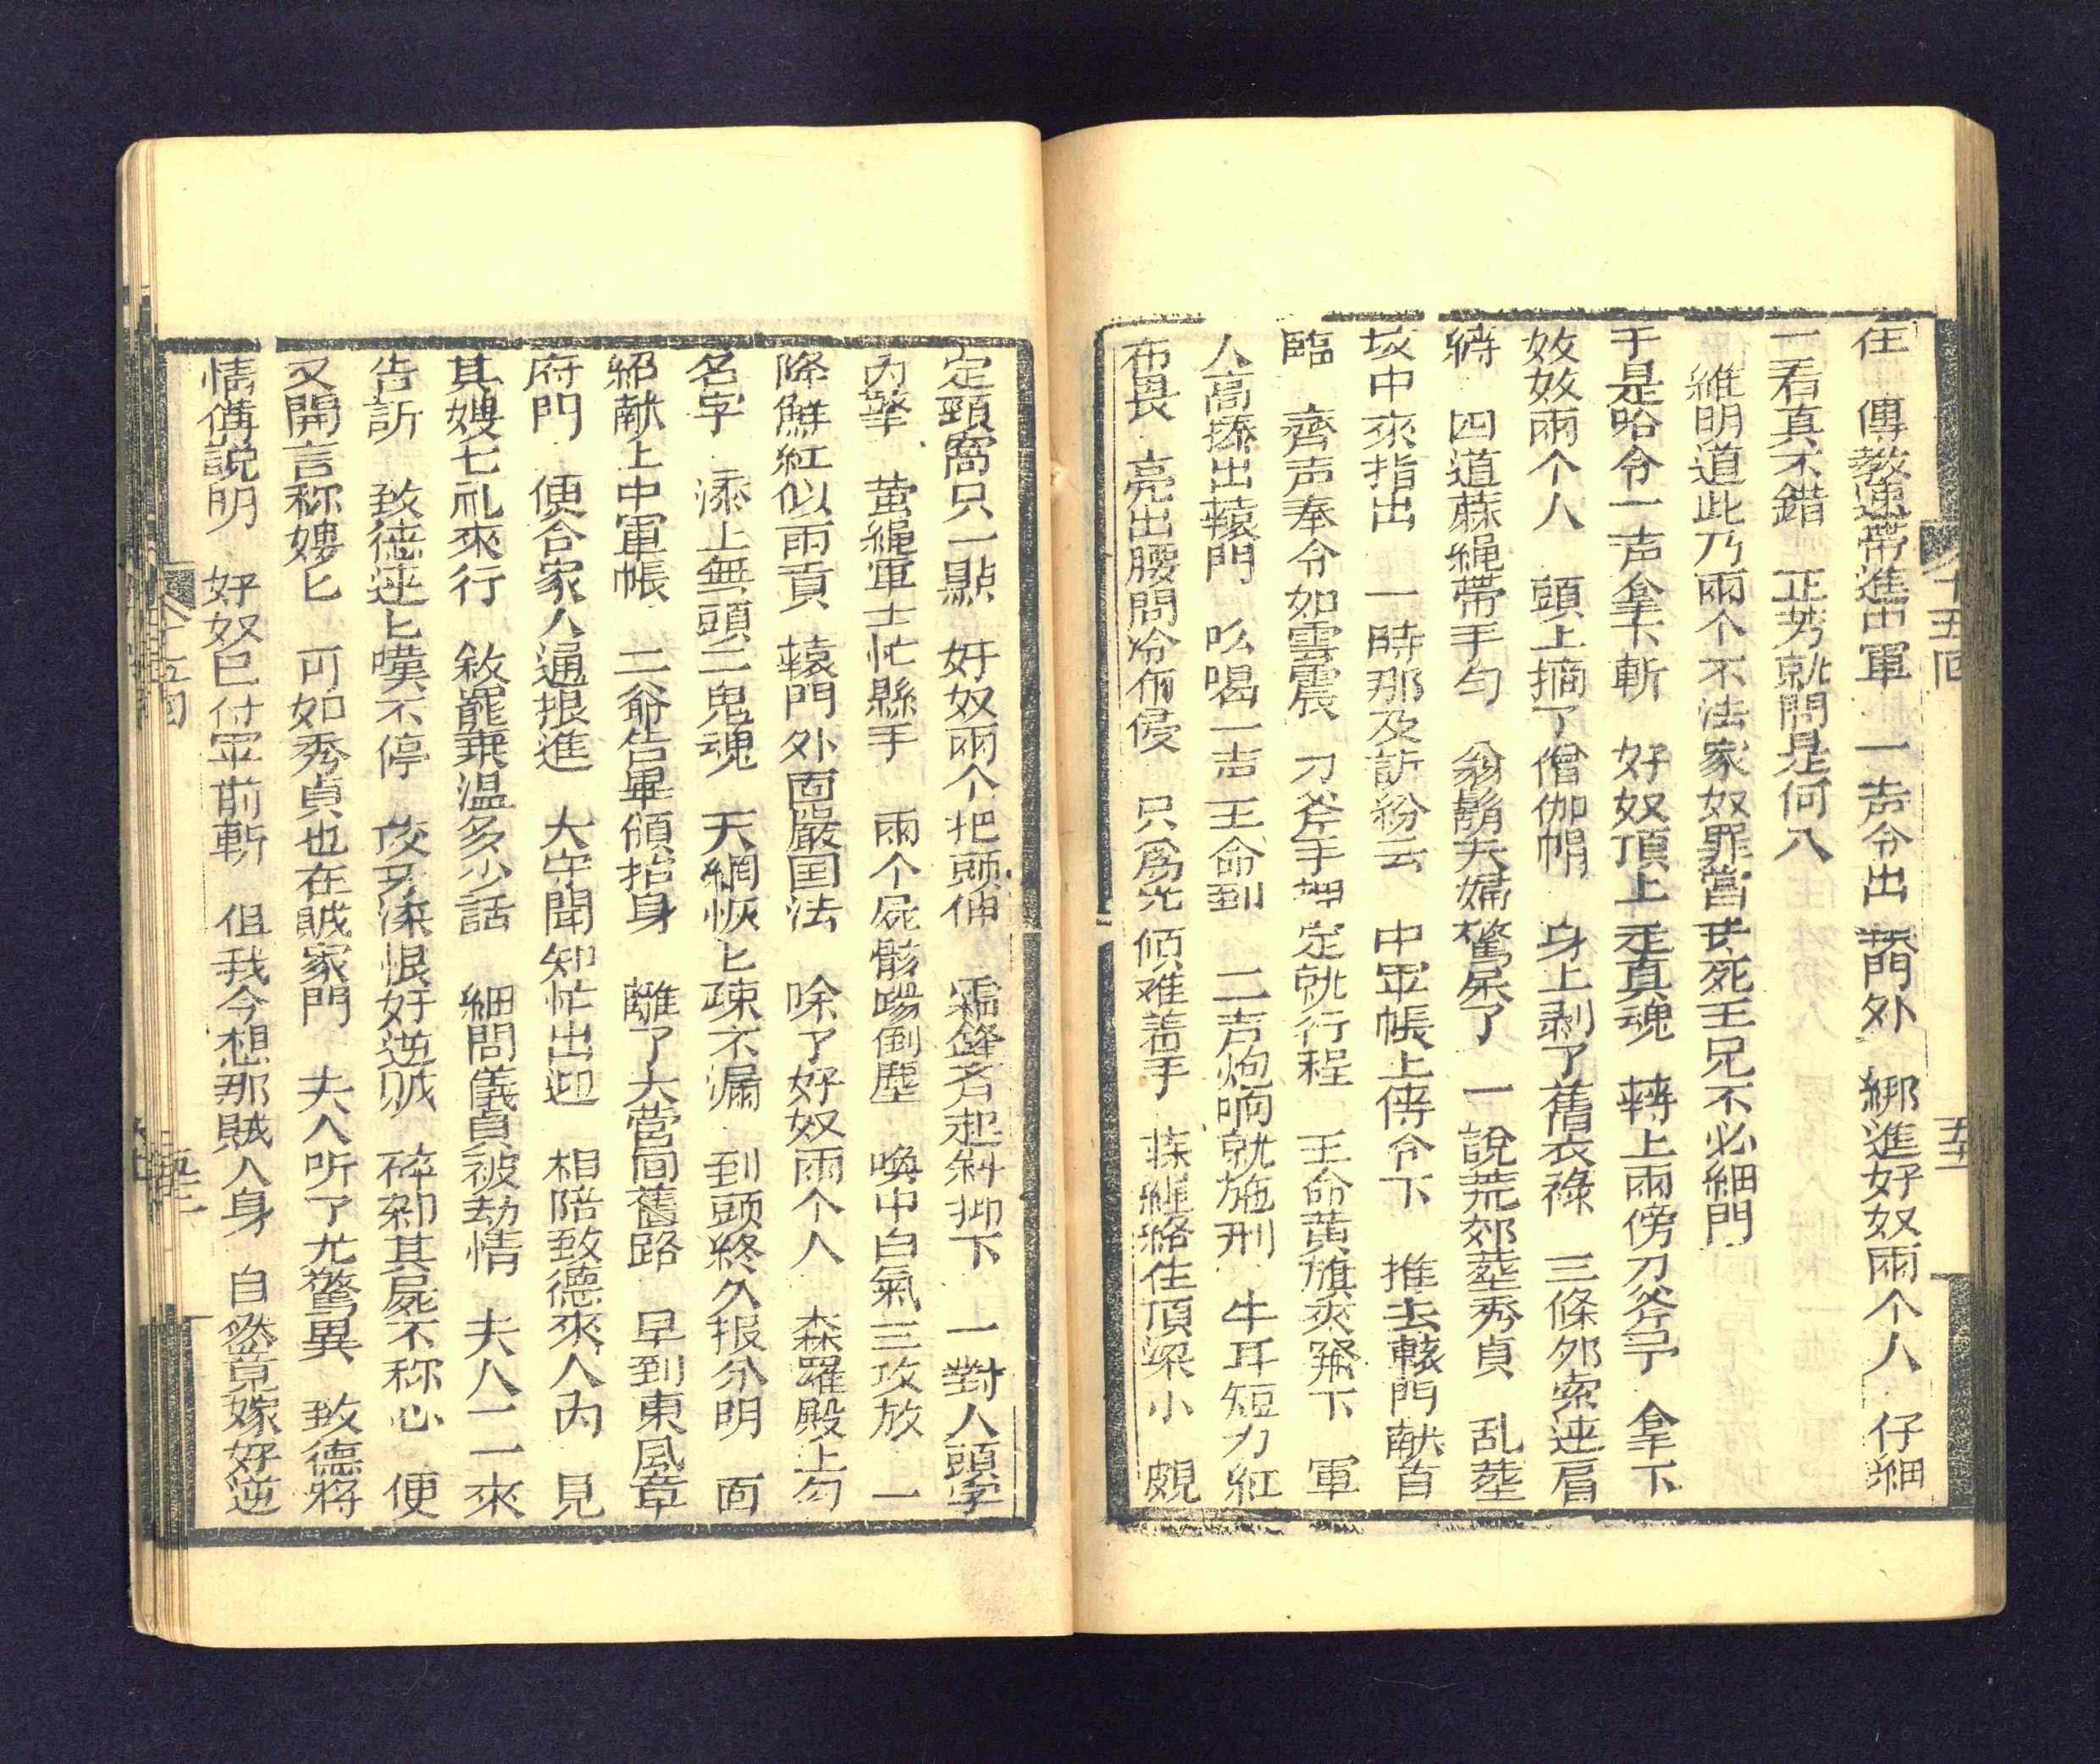 住 傳教速帶進中軍 一声令出轅門外 綁進奸奴兩个人 仔細
一看真不錯 正芳就問是何人
維明道此乃兩个不法家奴罪當 死王兄不必細問
于是哈令一声拿下斬 奸奴頂上走真魂 轉上兩傍刀斧手 拿下
奴奴兩个人 頭上摘了僧伽帽 身上剥了舊衣祿 三條 索連肩
縛 四道蔴繩帶手勻 翁 夫婦驚呆了 一說荒郊塟秀貞 乱塟
坟中來指出 一時那及訴紛云 中軍帳上傳令下 推去轅門献首
臨 齊声奉令如雲震 刀斧手押定就行程 王命黄旗夾 下 軍
人高捧出轅門 吆喝一吉王命到 二声炮响就施刑 牛耳短刀紅
布畏 亮出腰間冷 侵 只為 傾难善手 蔴繩絡住頂梁小 覷
定頸窩只一點 奸奴兩个把頭伸 霜鋒斉起斜抑下 一對人頭字
内擎 萤繩軍士忙縣手 兩个屍骸踢倒塵 喚中白氣三攻放 一
降鮮紅似雨貢 轅門外面嚴国法 除了奸奴兩个人 森羅殿上勾
名字 添上無頭二鬼魂 天網恢匕疎不漏 到頭終久报分明 面
紹献上中軍帳 二爺告畢傾抬身 離了大营间舊路 早到東風章
府門 便合家人通报進 大守聞知忙出迎 相陪致德來入内 見
其嫂七礼來行 敘罷寒温多少話 細問儀貞被劫情 夫人一一來
告訴 致德連匕嘆不停 咬牙深恨奸逆贼 碎剁其屍不称心 便
又開言称嫂匕 可如秀貞也在賊家門 夫人听了尤驚異 致德將
情備説明 奸奴已付军前斬 但我今想那賊人身 自然竟嫁奸逆
十五回
五十一